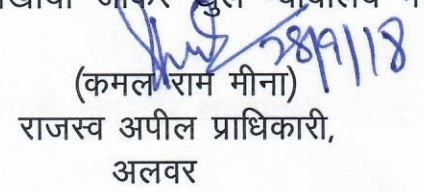 जाकर
28/9/18
(कमल राम मीना)
राजस्व अपील प्राधिकारी,
अलवर